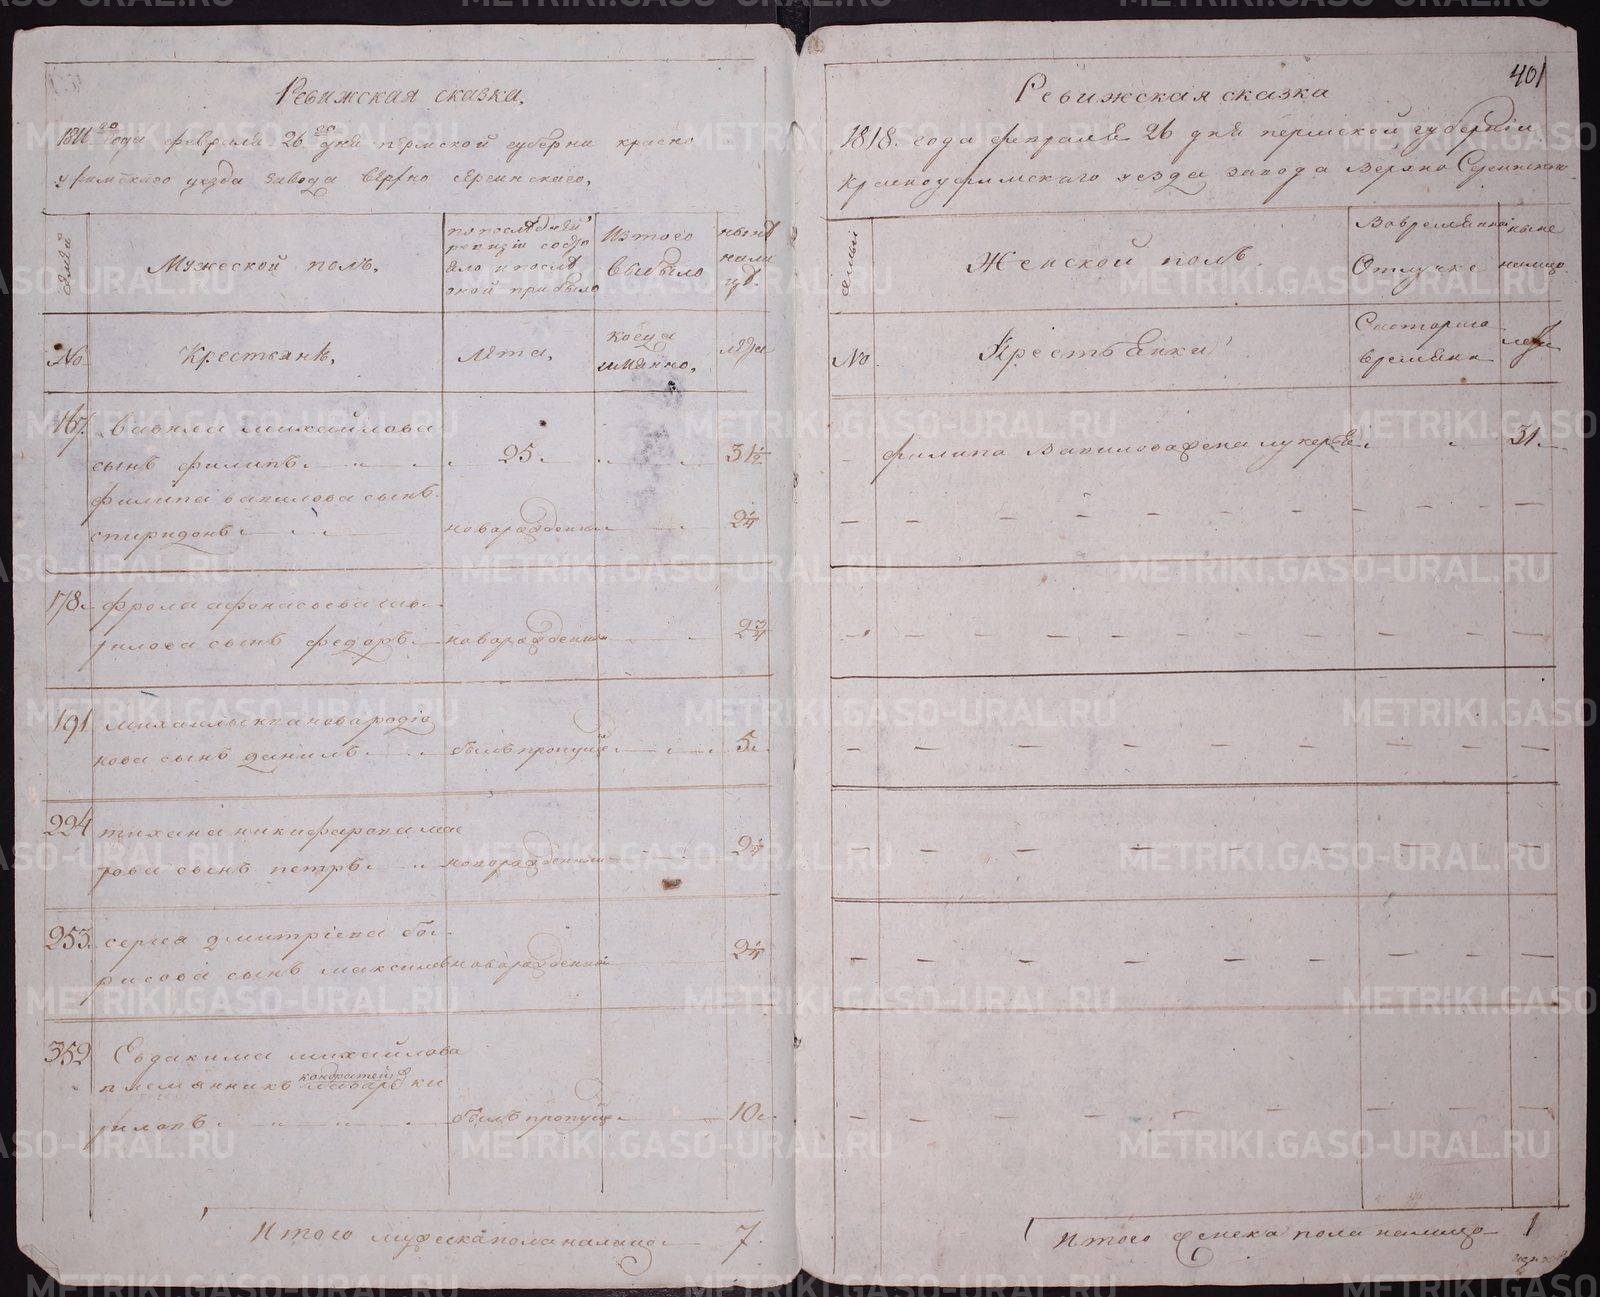 Ревижская сказка.
1818го года февраля 26го дня пермской губерни красно
уфимскаго уезда завода верхно сергинскаго,
семей
Мужеской полъ,
по последней
ревизiи состо
яло и после
оной прибыло
Изтого
выбыло
ныне
нали
цо.
No
Крестьяне,
Лета,
когда
имянно,
лета
167. вавила михайлова
сынъ филипъ. 25. 31 1/2
филипа вавилова сынъ
спиридонъ новорожденны 2 1/4
178. фрола афонасьева гав
рилова сынъ федоръ новорожденны 2 3/4
191 михаилы иванова родiо
нова сынъ данилъ былъ пропуще 5.
224 тихана никифарова
сынъ петръ. новорожденны 2 1/4
253. сергея дмитрiева бо
рисова сынъ максимъ новорожденной 2 1/4
352 Евдакима михайлова
племянникъ кондратей ки
рилавъ былъ пропуще 10.
Итого мужеска пола налицо 7.
401
Ревижская сказка
1818. года февраля 26 дня пермской губернiи
Красноуфимскаго уезда завода Верхно Сергинскаго
семьи
Женской полъ.
Вовременной
Отлучке
ныне
налицо.
No
Крестьянки
Скоторого
времяни
лета
филипа Вавилова жена лукерья 31.
Итого женска пола налицо 1